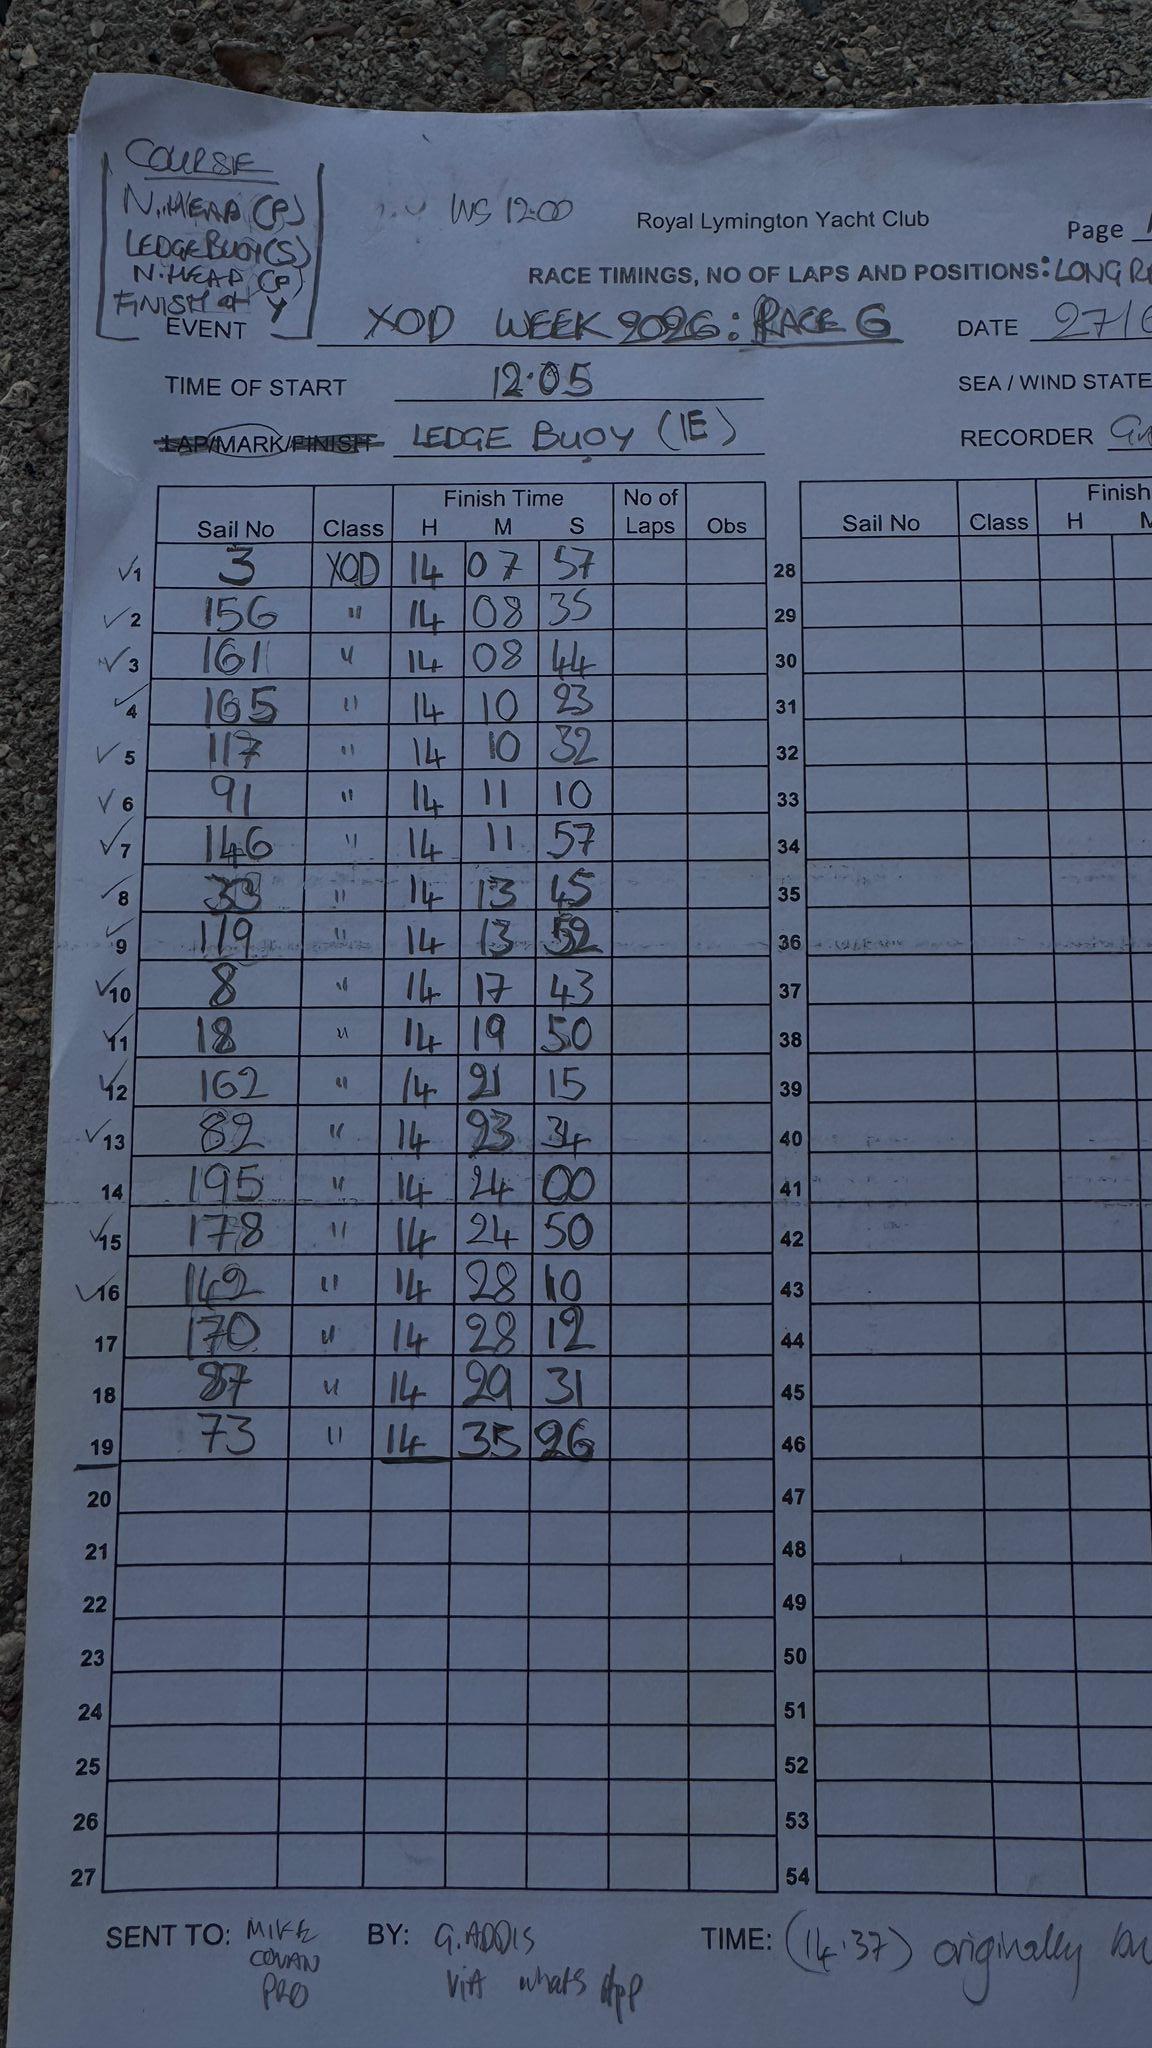 COURSE
N.HEAD (P)
LEDGE BUOY (S)
N.HEAD (P)
FINISH at Y
WS 12:00
Royal Lymington Yacht Club
Page
RACE TIMINGS, NO OF LAPS AND POSITIONS: LONG
EVENT XOD WEEK 2026: RACE G
DATE 27/
TIME OF START 12.05
SEA / WIND STATE
LAP/MARK/FINISH LEDGE BUOY (IE)
RECORDER
Finish Time No of Finish
Sail No Class H M S Laps Obs Sail No Class H M
✓1 3 XOD 14 07 57 28
✓2 156 " 14 08 35 29
✓3 161 " 14 08 44 30
✓4 165 " 14 10 23 31
✓5 117 " 14 10 32 32
✓6 91 " 14 11 10 33
✓7 146 " 14 11 57 34
✓8 33 " 14 13 45 35
✓9 119 " 14 13 52 36
✓10 8 " 14 17 43 37
✓11 18 " 14 19 50 38
✓12 162 " 14 21 15 39
✓13 82 " 14 23 34 40
14 195 " 14 24 00 41
✓15 178 " 14 24 50 42
✓16 142 " 14 28 10 43
17 170 " 14 28 12 44
18 87 " 14 29 31 45
19 73 " 14 35 26 46
20 47
21 48
22 49
23 50
24 51
25 52
26 53
27 54
SENT TO: MIKE BY: G. ADDIS TIME: (14.37) originally
PRO via whats App